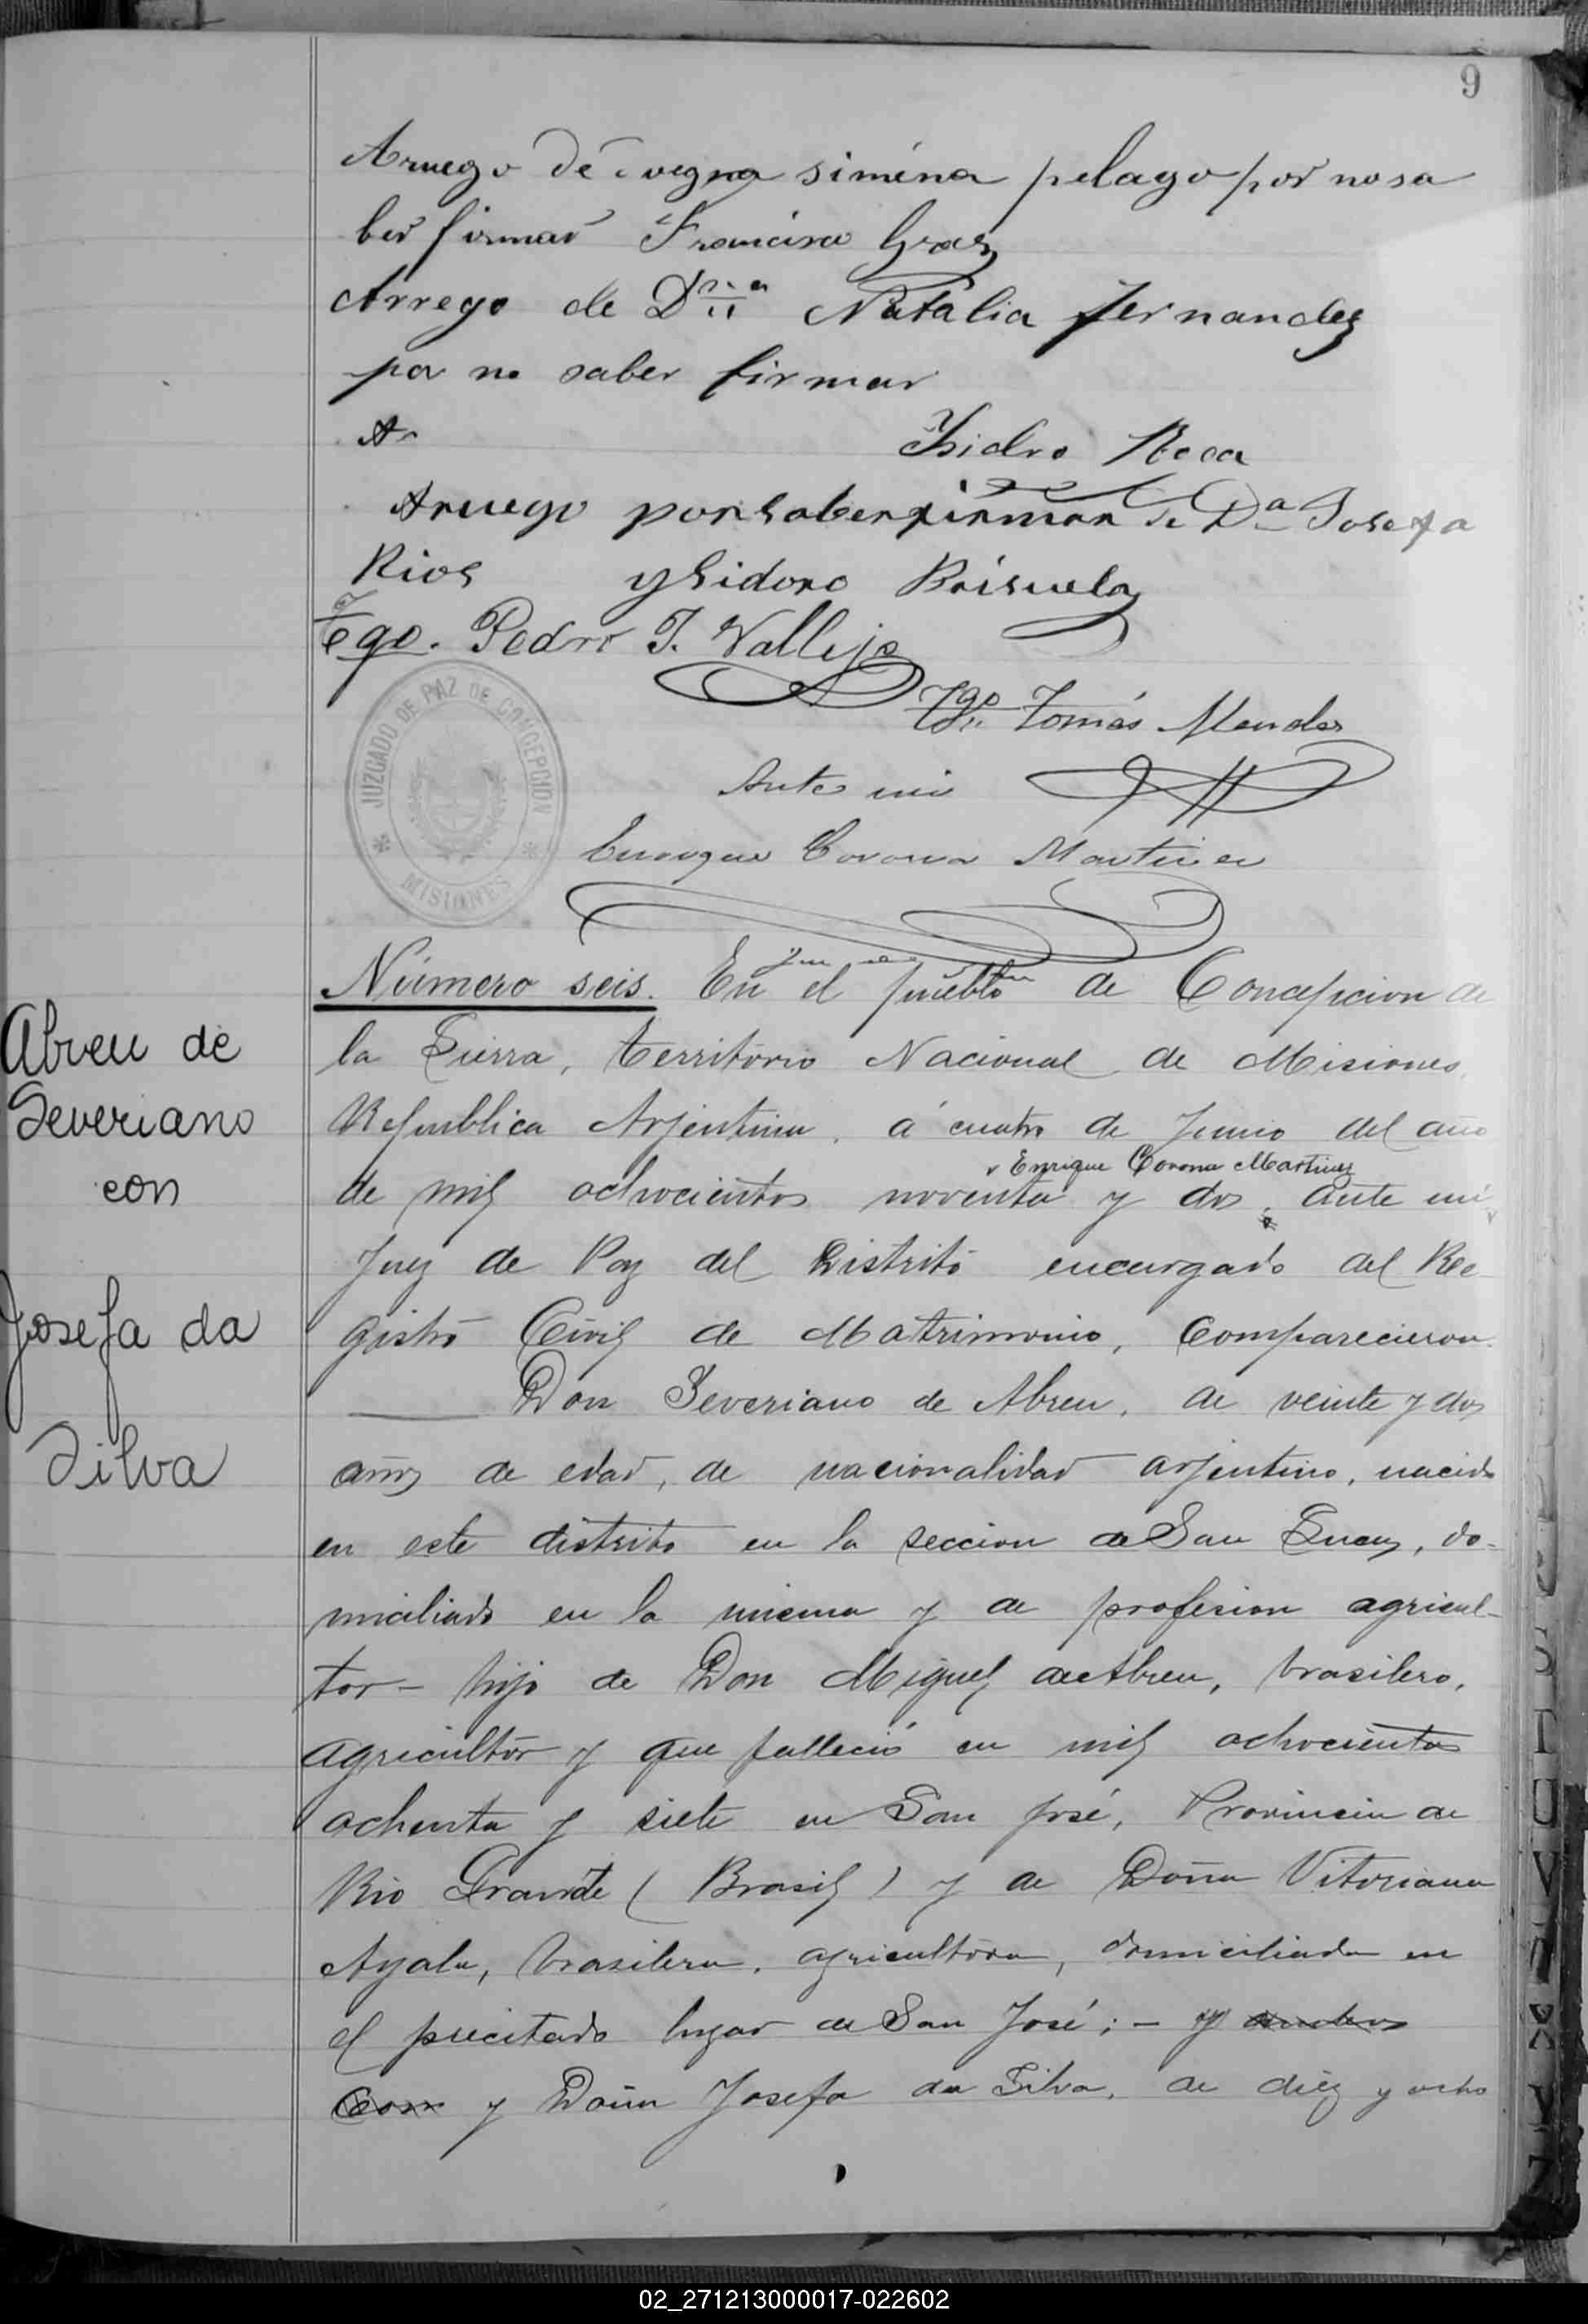 9
Aruego de siména pelago por nosa
ber firmar Francisco
Arrego de Dña Natalia Fernandez
por no saber firmar
Ar
Isidro Roca
Aruego porsaberfirmar de Da Josefa
Rios ysidoro Brisuela
Tgo. Pedro I. Vallejo
Tgo Tomás Mendes
JUZGADO DE PAZ DE CONCEPCION
MISIONES
Ante mi
Enrique Corona Martinez
Número seis. En el pueblo de Concepcion de
la Sierra, territorio Nacional de Misiones,
Republica Arjentina, á cuatro de Junio del año
Enrique Corona Martinez
de mil ochocientos noventa y dos, ante mí
Juez de Paz del Distrito encargado del Re-
gistro Civil de Matrimonio, Comparecieron
Don Severiano de Abreu, de veinte y dos
años de edad, de nacionalidad arjentino, nacido
en este distrito en la seccion de San Lucas, do-
miciliado en la misma y de profesion agricul-
tor - hijo de Don Miguel de Abreu, brasilero,
agricultor y que falleció en mil ochocientos
ochenta y siete en San José, Provincia de
Rio Grande (Brasil) y de Doña Vitoriana
Ayala, brasilera, agricultora, domiciliada en
el precitado lugar de San José; - y ambos
Com y Doña Josefa da Silva, de diez y ocho
Abreu de
Severiano
con
Josefa da
Silva
S
T
U
V
X
Y
Z
02_271213000017-022602